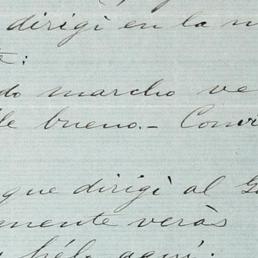 dirigí en la
:
do marcho ve
le bueno.- Conv
que dirigì al G
mente veràs
hélo aquí: